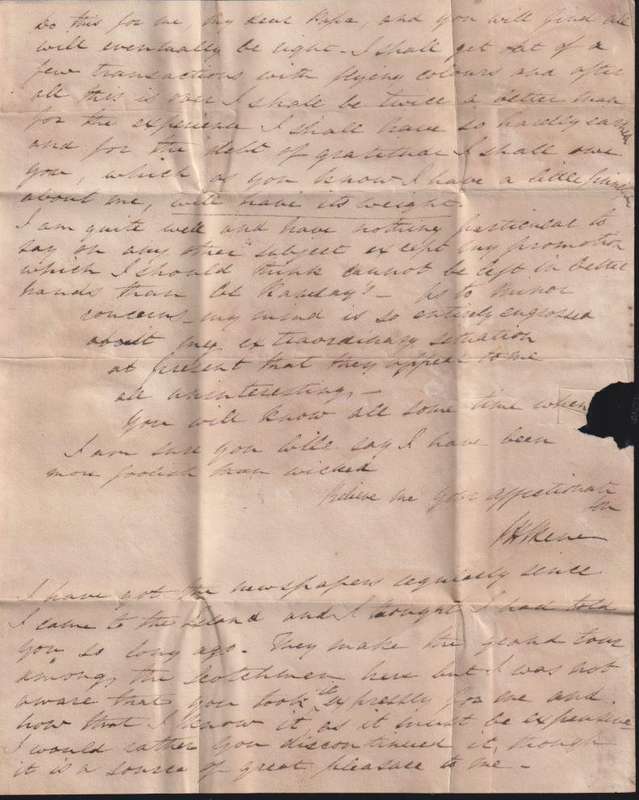 Do this for me, my dear Papa, and you will find all
will eventually be right. I shall get out of a
few transactions with flying colours and after
all this is over I shall be twice a better man
for the experience I shall have so hardly earned
and for the debt of gratitude I shall owe
you, which as you know I have a little
about me, will have its weight.
I am quite well and have nothing particular to
say on any other subject except my promotion
which I should think cannot be left in better
hands than Col Ramsay's - As to minor
concerns - my mind is so entirely engrossed
about my extraordinary situation
at present that they appear to me
all uninteresting, -
You will know all some time when
I am sure you will say I have been
more foolish than wicked
Believe me your affectionate
Son
Skene
I have got the newspapers regularly since
I came to the Island and I thought I had told
you so long ago. They make the grand tour
among the Scotchmen here but I was not
aware that you took it expressly for me and
now that I know it as it must be expensive
I would rather you discontinued it, though
it is a source of great pleasure to me -